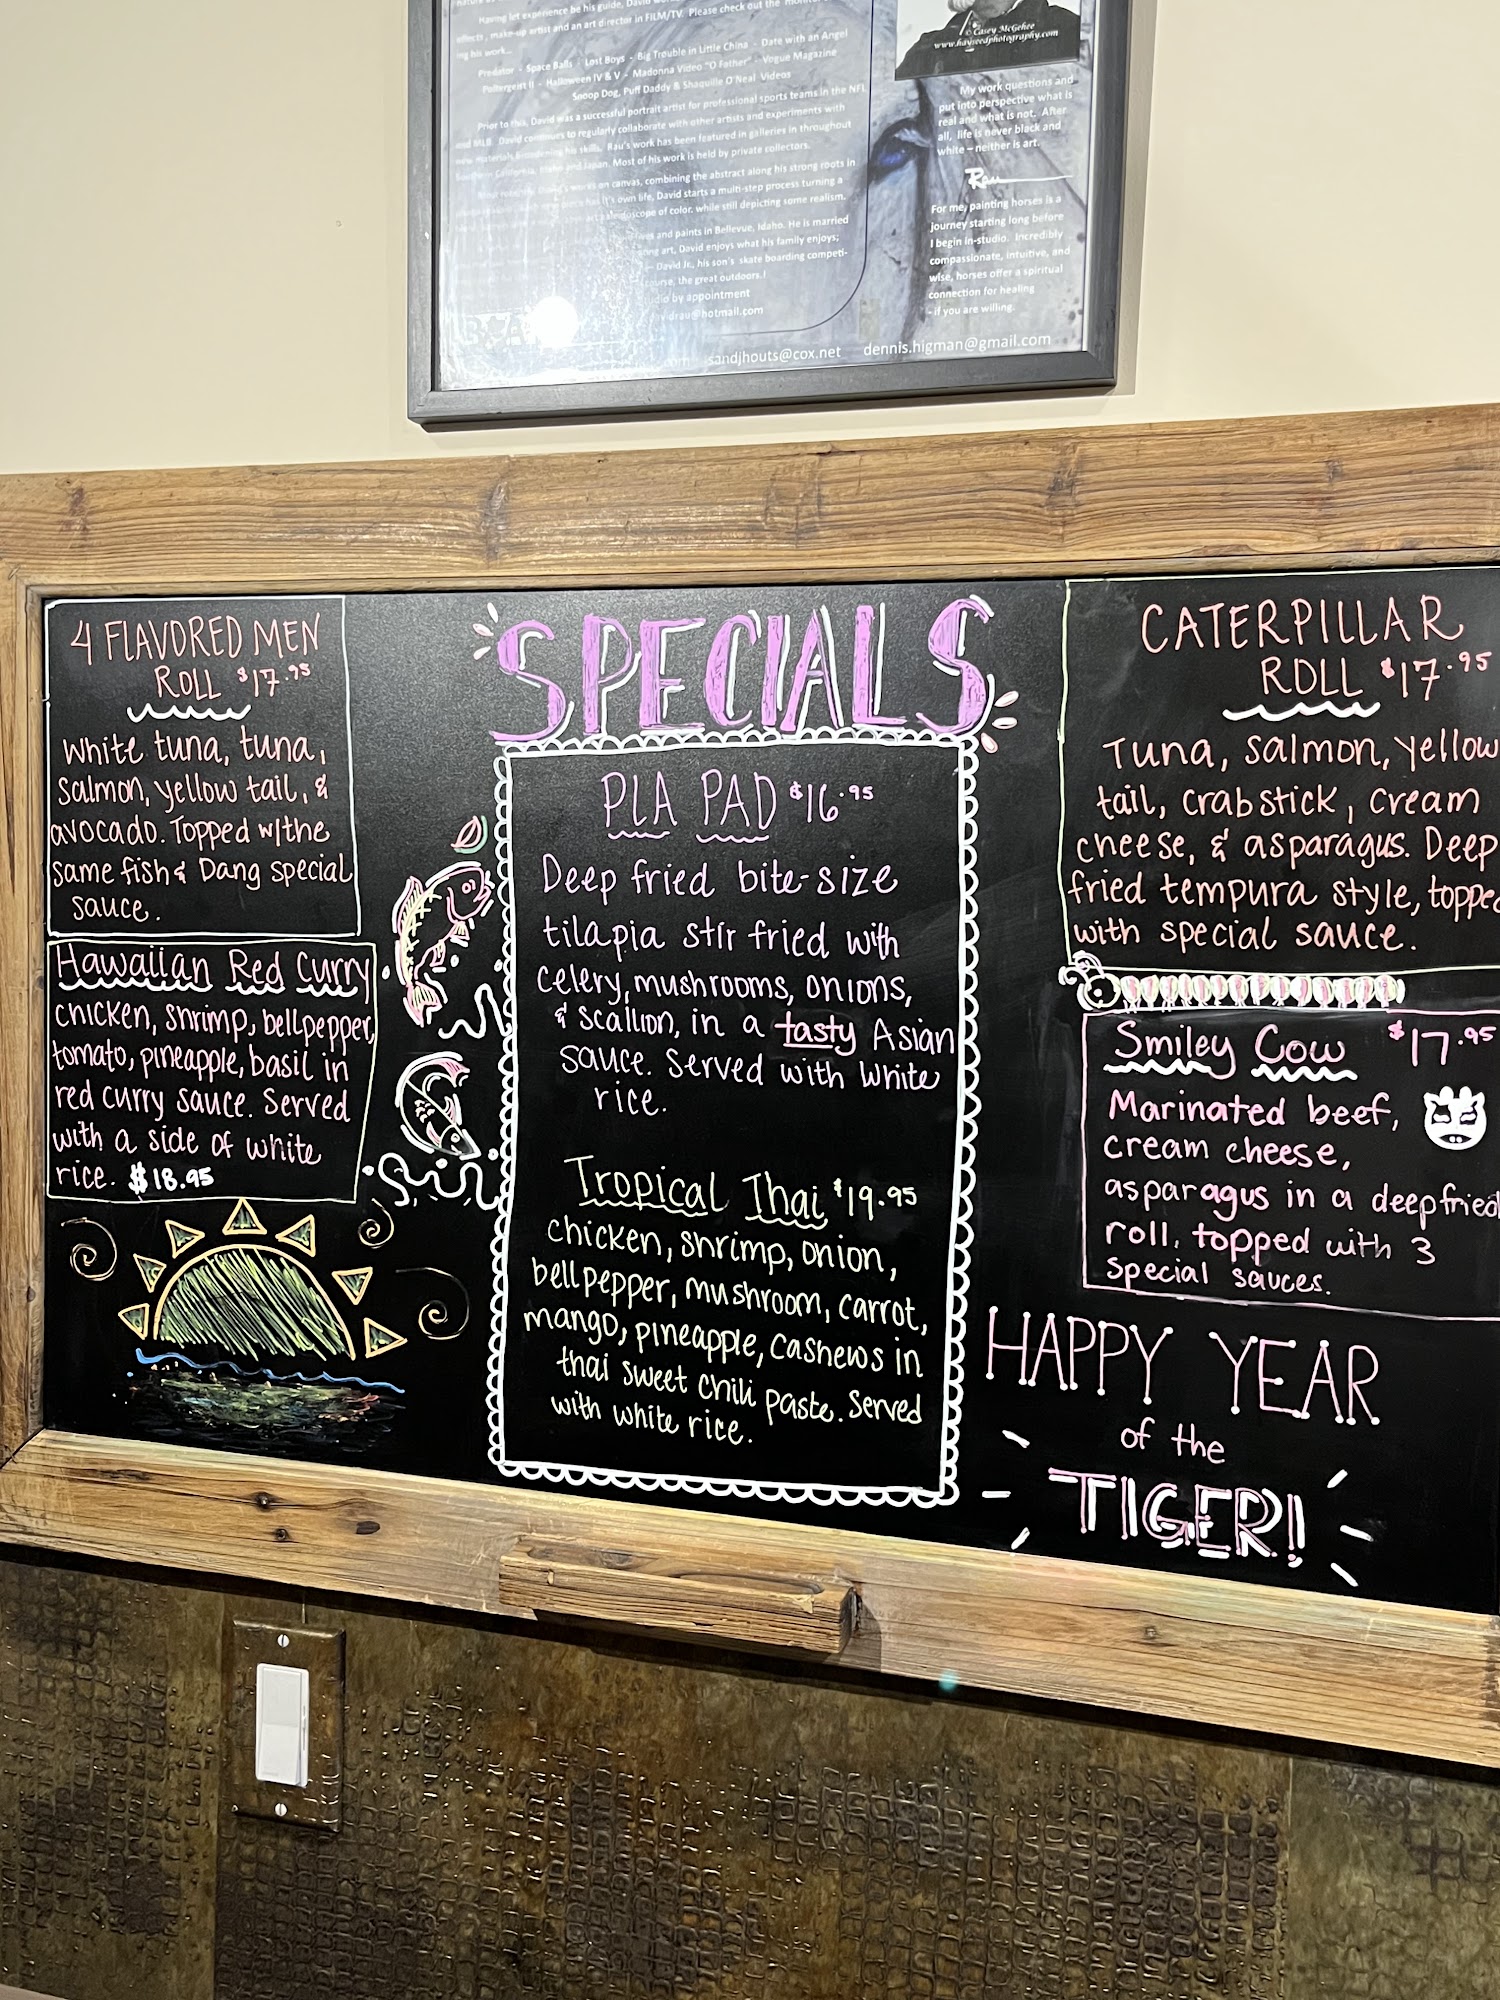 Having let experience be his guide, David
effects, make-up artist and an art director in FILM/TV. Please check out the
ing his work...
Predator - Space Balls - Lost Boys - Big Trouble in Little China - Date with an Angel
Poltergeist II - Halloween IV & V - Madonna Video "O Father" - Vogue Magazine
Snoop Dog, Puff Daddy & Shaquille O'Neal Videos
Prior to this, David was a successful portrait artist for professional sports teams in the NFL
and MLB. David continues to regularly collaborate with other artists and experiments with
new materials broadening his skills. Rau's work has been featured in galleries in throughout
Southern California, Idaho and Japan. Most of his work is held by private collectors.
works on canvas, combining the abstract along his strong roots in
own life, David starts a multi-step process turning a
of color, while still depicting some realism.
and paints in Bellevue, Idaho. He is married
art, David enjoys what his family enjoys;
David Jr., his son's skate boarding competi-
the great outdoors.!
by appointment
@hotmail.com
© Casey McGehee
www.hayseedphotography.com
My work questions and
put into perspective what is
real and what is not. After
all, life is never black and
white – neither is art.
Rau
For me, painting horses is a
journey starting long before
I begin in-studio. Incredibly
compassionate, intuitive, and
wise, horses offer a spiritual
connection for healing
- if you are willing.
sandjhouts@cox.net dennis.higman@gmail.com
4 FLAVORED MEN
ROLL $17.95
White tuna, tuna,
salmon, yellow tail, &
avocado. Topped w/the
same fish & Dang special
sauce.
Hawaiian Red Curry
chicken, shrimp, bellpepper,
tomato, pineapple, basil in
red curry sauce. Served
with a side of white
rice. $18.95
SPECIALS
PLA PAD $16.95
Deep fried bite-size
tilapia stir fried with
celery, mushrooms, onions,
& scallion, in a tasty Asian
sauce. Served with white
rice.
Tropical Thai $19.95
chicken, shrimp, onion,
bellpepper, mushroom, carrot,
mango, pineapple, cashews in
thai sweet chili paste. Served
with white rice.
CATERPILLAR
ROLL $17.95
Tuna, salmon, yellow
tail, crabstick, cream
cheese, & asparagus. Deep
fried tempura style, topped
with special sauce.
Smiley Cow $17.95
Marinated beef,
cream cheese,
asparagus in a deep fried
roll, topped with 3
special sauces.
HAPPY YEAR
of the
TIGER!